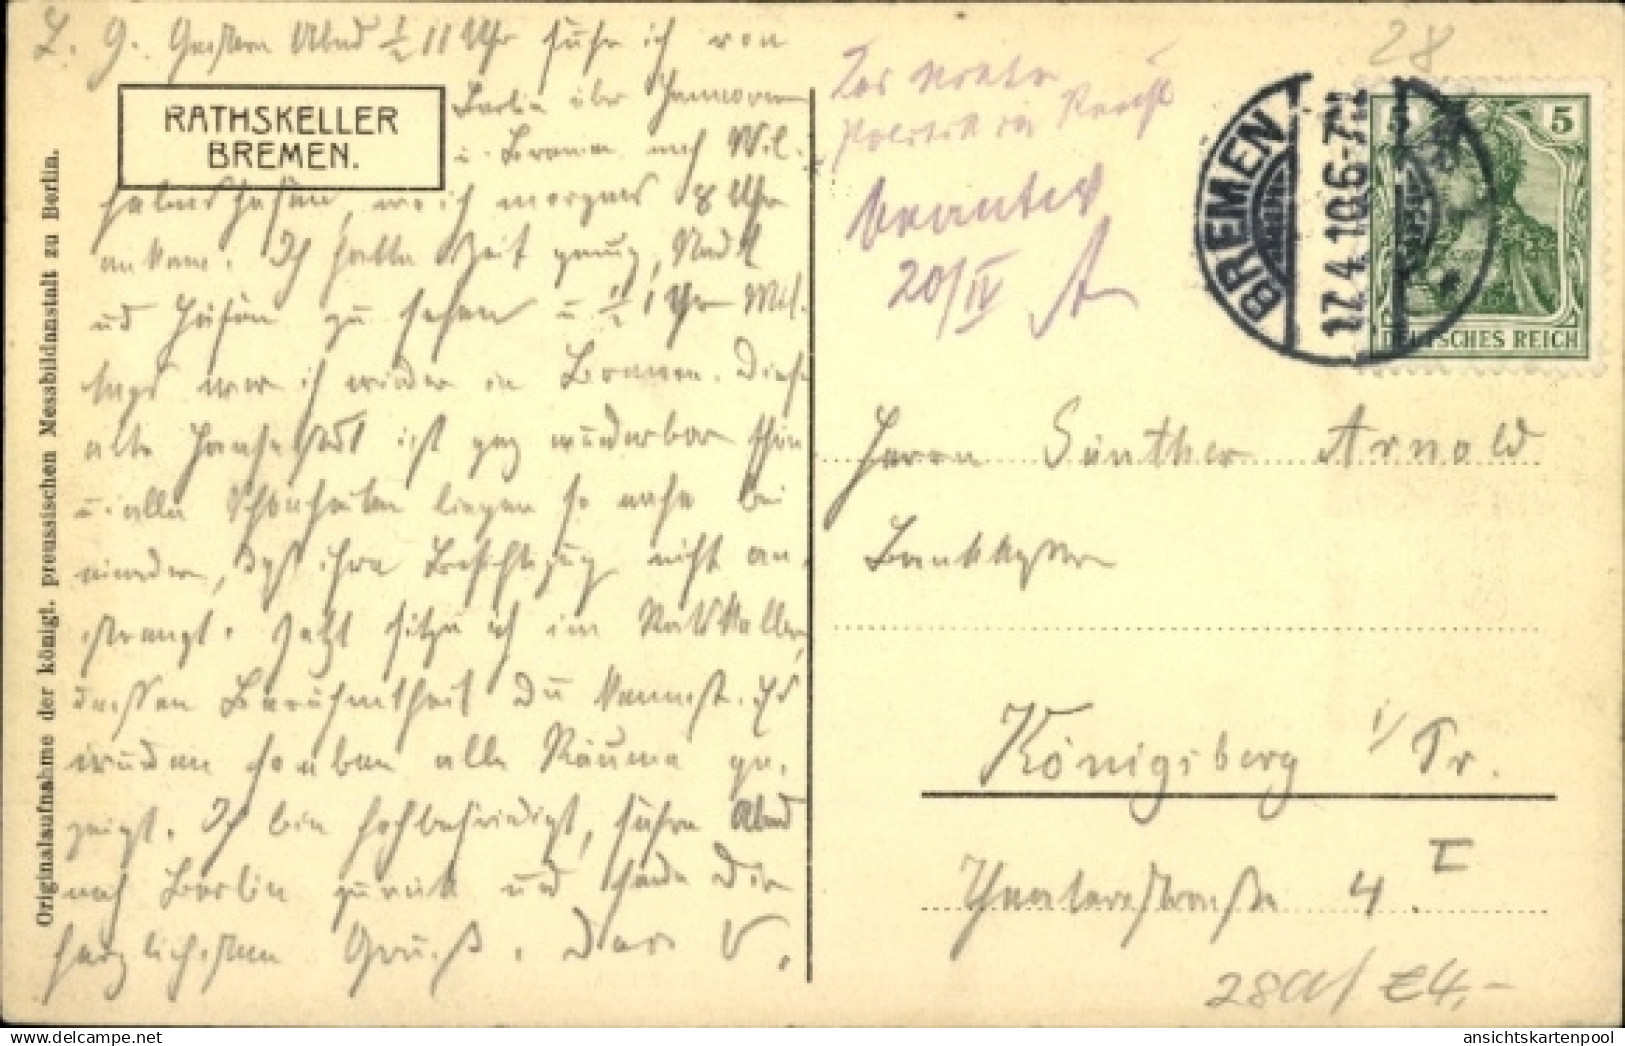 L. G. Gestern Abend ½ 11 Uhr fuhr ich von
Berlin über Hannover
u. Bremen nach Wil-
helmshafen, wo ich morgens 8 Uhr
ankam. Ich hatte Zeit genug, Stadt
und Häfen zu sehen u. ½ 1 Uhr Mit-
tags war ich wieder in Bremen. Diese
alte Hansestadt ist ganz wunderbar schön
u. alle Schönheiten liegen so nahe bei
einander, daß ihre Besichtigung nicht an-
strengt. Jetzt sitze ich im Ratskeller,
dessen Berühmtheit Du kennst. Es
wurden soeben alle Räume ge-
zeigt. Ich bin hochbefriedigt, fahre Abend
nach Berlin zurück und sende Dir
herzlichsten Gruß. Der V.
RATHSKELLER
BREMEN.
Originalaufnahme der königl. preussischen Messbildanstalt zu Berlin.
28
Politik
20/IV A
BREMEN
17.4.10.6-7N
5
DEUTSCHES REICH
Herrn Günther Arnold
Königsberg i/Pr.
Theaterstraße 4 I
280/ £4,-
ansichtskartenpool